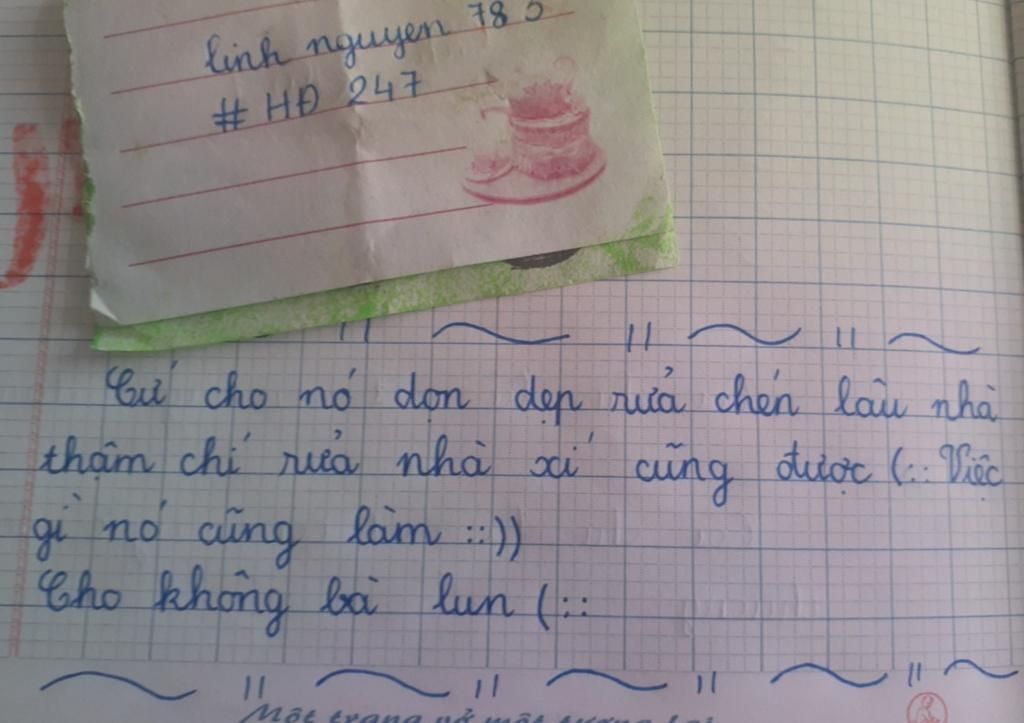 linh nguyen 785
# HĐ 247
Cứ cho nó dọn dẹp rửa chén lâu nhà
thậm chí rửa nhà xí cũng được (:: Việc
gì nó cũng làm ::))
Cho không bà lun (::
Một trang vở một tương lai